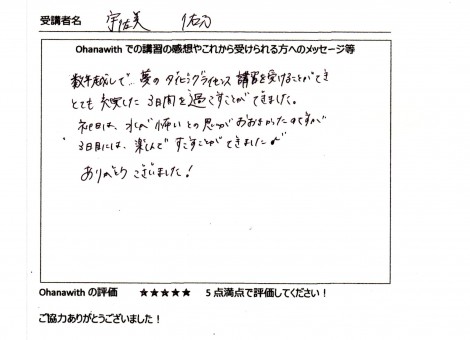 受講者名 宇佐美 佑介
Ohanawith での講習の感想やこれから受けられる方へのメッセージ等
数年越しで… 夢の ダイビングライセンス 講習を受けることができ
とても 充実した 3日間を 過ごすことができました。
初日は、水が 怖いとの思いが おおきかったのですが
3日目には、楽しんで すごすことが できました
ありがとう ございました!
Ohanawith の評価 ★★★★★ 5 点満点で評価してください!
ご協力ありがとうございました!